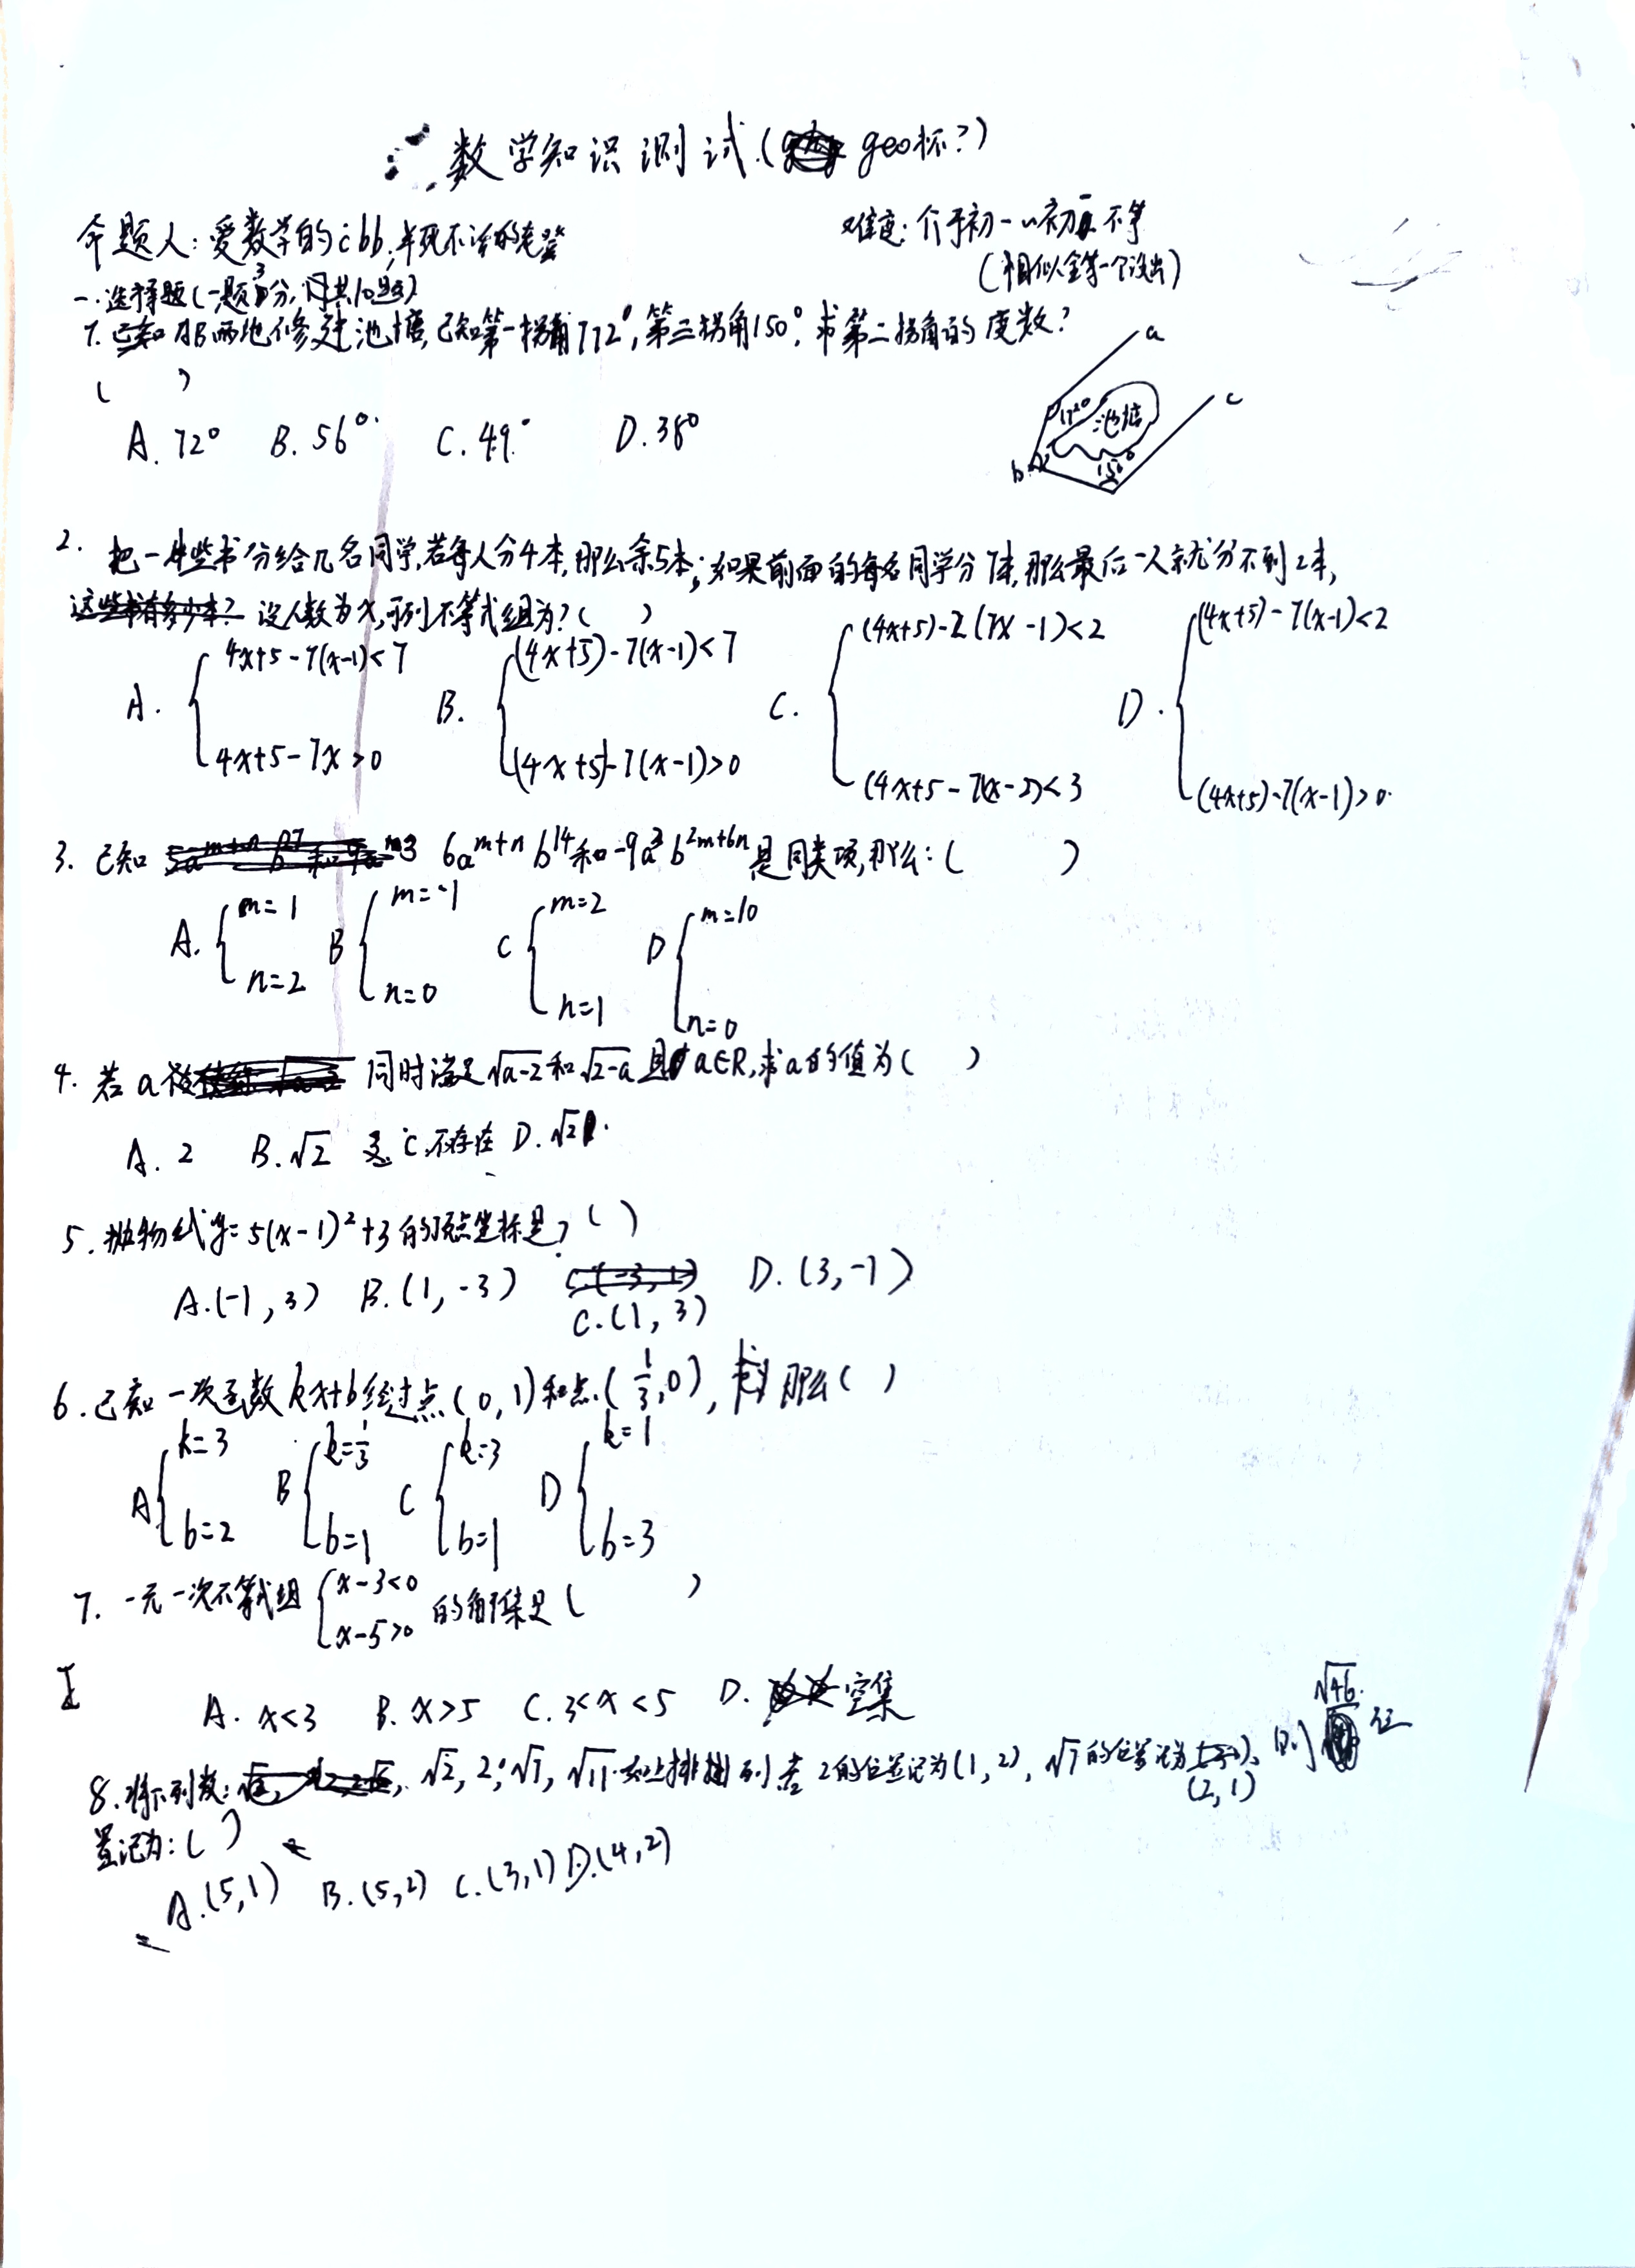 数学知识测试(geo杯?)
命题人:爱数学的cbb,半死不活的老登
难度:介于初一~初二不等
(相似全等一个没出)
一.选择题(一题3分,共10题)
1.已知AB两地修建池塘,已知第一拐角112°,第三拐角150°,求第二拐角的度数?
( )
A.72° B.56° C.49° D.38°
a
c
b
112°
池塘
150°
2. 把一些书分给几名同学,若每人分4本,那么余5本;如果前面的每名同学分7本,那么最后一人就分不到2本,
这些书有多少本? 设人数为x,可列不等式组为?( )
A. { 4x+5-7(x-1)<7
4x+5-7x>0
B. { (4x+5)-7(x-1)<7
(4x+5)-7(x-1)>0
C. { (4x+5)-2(7x-1)<2
(4x+5-7(x-2)<3
D. { (4x+5)-7(x-1)<2
(4x+5)-7(x-1)>0
3. 已知 6a^{m+n}b^{14}和-9a^{3}b^{2m+6n}是同类项,那么:( )
A. { m=1
n=2
B { m=-1
n=0
C { m=2
n=1
D { m=10
n=0
4. 若a 同时满足√a-2和√2-a且a∈R,求a的值为( )
A. 2 B.√2 C.不存在 D.√21
5.抛物线y=5(x-1)²+3的顶点坐标是?( )
A.(-1,3) B.(1,-3) D.(3,-1)
C.(1,3)
6.已知一次函数kx+b经过点(0,1)和点(1/3,0),那么( )
A { k=3
b=2
B { k=1/3
b=1
C { k=3
b=1
D { k=1
b=3
7. 一元一次不等式组 { x-3<0
x-5>0 的解集是( )
A. x<3 B. x>5 C. 3<x<5 D. 空集
8.将下列数: √2,2,√7,√11.如上排列 若2的位置记为(1,2),√7的位置记为(2,1),则√46位
置记为:( )
A.(5,1) B.(5,2) C.(3,1) D.(4,2)